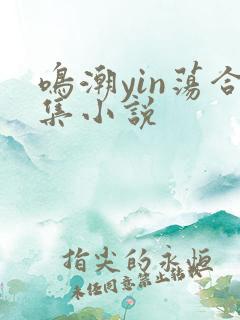 鸣潮yin荡合
集小说
指尖的永恒
未经同意禁止转载